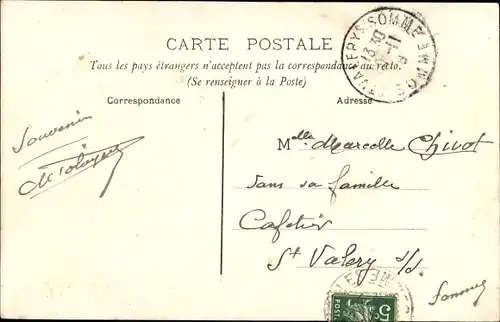 CARTE POSTALE
Tous les pays étrangers n'acceptent pas la correspondance au recto.
(Se renseigner à la Poste)
Correspondance
Adresse
Souvenir
Melle Marcelle Chivot
dans sa famille
Cafetier
St Valery s/s
Somme
SOMME
13 30
POST